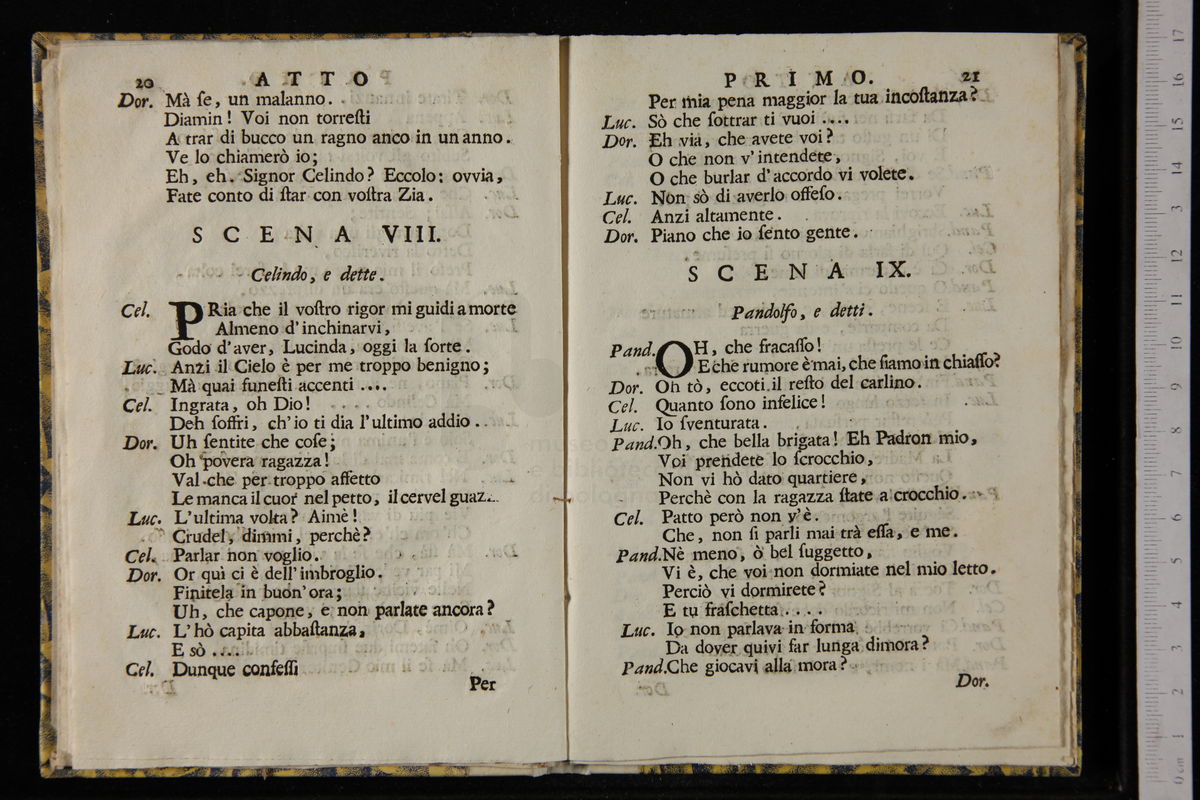 20 ATTO
Dor. Mà ſe, un malanno.
Diamin! Voi non torreſti
A trar di bucco un ragno anco in un anno.
Ve lo chiamerò io;
Eh, eh. Signor Celindo? Eccolo: ovvia,
Fate conto di ſtar con voſtra Zia.
SCENA VIII.
Celindo, e dette.
Cel. PRia che il voſtro rigor mi guidi a morte
Almeno d'inchinarvi,
Godo d'aver, Lucinda, oggi la ſorte.
Luc. Anzi il Cielo è per me troppo benigno;
Mà quai funeſti accenti ....
Cel. Ingrata, oh Dio!
Deh ſoffri, ch'io ti dia l'ultimo addio..
Dor. Uh ſentite che coſe;
Oh povera ragazza!
Val che per troppo affetto
Le manca il cuor nel petto, il cervel guaz...
Luc. L'ultima volta? Aimè!
Crudel, dimmi, perchè?
Cel. Parlar non voglio.
Dor. Or quì ci è dell'imbroglio.
Finitela in buon'ora;
Uh, che capone, e non parlate ancora?
Luc. L'hò capita abbaſtanza,
E sò ....
Cel. Dunque confeſſi
Per
PRIMO. 21
Per mia pena maggior la tua incoſtanza?
Luc. Sò che ſottrar ti vuoi ....
Dor. Eh via, che avete voi?
O che non v'intendete,
O che burlar d'accordo vi volete.
Luc. Non sò di averlo offeſo.
Cel. Anzi altamente.
Dor. Piano che io ſento gente.
SCENA IX.
Pandolfo, e detti.
Pand. OH, che fracaſſo!
E che rumore è mai, che ſiamo in chiaſſo?
Dor. Oh tò, eccoti il reſto del carlino.
Cel. Quanto ſono infelice!
Luc. Io ſventurata.
Pand. Oh, che bella brigata! Eh Padron mio,
Voi prendete lo ſcrocchio,
Non vi hò dato quartiere,
Perchè con la ragazza ſtate a crocchio.
Cel. Patto però non v'è.
Che, non ſi parli mai trà eſſa, e me.
Pand. Nè meno, ò bel ſuggetto,
Vi è, che voi non dormiate nel mio letto.
Perciò vi dormirete?
E tu fraſchetta ....
Luc. Io non parlava in forma
Da dover quivi far lunga dimora?
Pand. Che giocavi alla mora?
Dor.